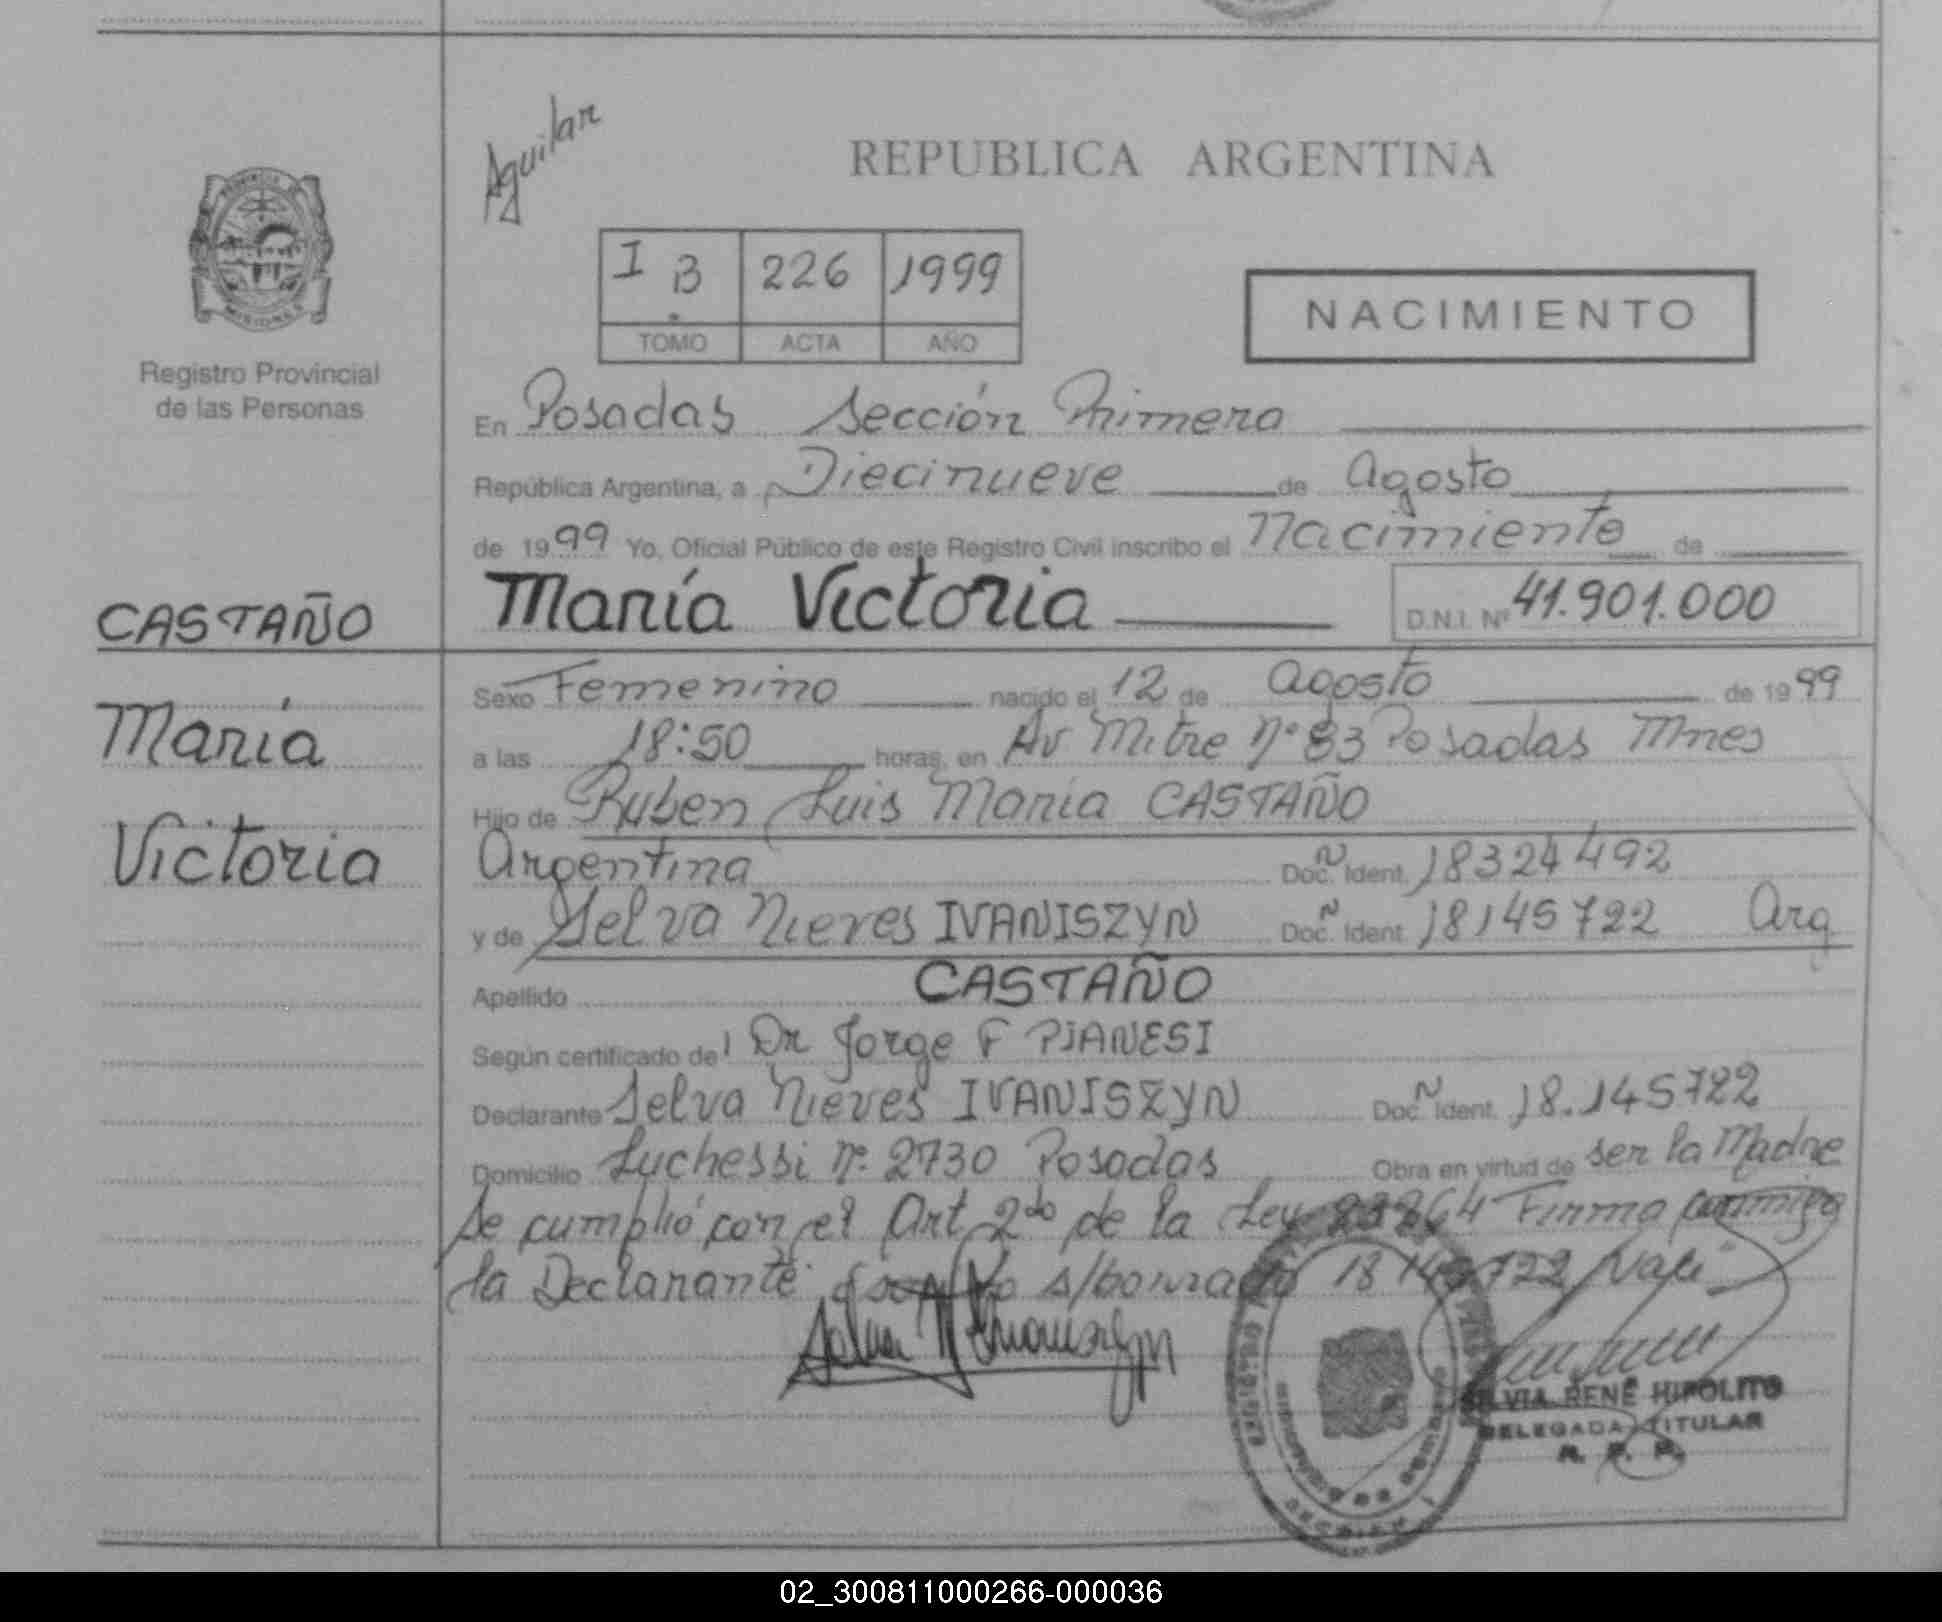 Aguilar
REPUBLICA ARGENTINA
I B 226 1999
TOMO ACTA AÑO
NACIMIENTO
PROVINCIA DE
MISIONES
Registro Provincial
de las Personas
En Posadas Sección Primera
República Argentina, a Diecinueve de Agosto
de 1999 Yo, Oficial Público de este Registro Civil inscribo el Nacimiento de
CASTAÑO
María Victoria D.N.I. Nº 41.901.000
María
Victoria
Sexo Femenino nacido el 12 de Agosto de 1999
a las 18:50 horas, en Av Mitre Nº 83 Posadas Mnes
Hijo de Ruben Luis María CASTAÑO
Argentina Doc. Ident. 18324492
y de Selva Nieves IVANISZYN Doc. Ident. 18145722 Arg
Apellido CASTAÑO
Según certificado del Dr Jorge F PIANESI
Declarante Selva Nieves IVANISZYN Doc. Ident. 18.145722
Domicilio Luchessi Nº 2730 Posadas Obra en virtud de ser la Madre
Se cumplió con el Art 2do de la Ley 23264 Firma conmigo
la Declarante s/borrado 18145722 Vale
SILVIA RENÉ HIPOLITO
DELEGADA TITULAR
R. P. P.
02_300811000266-000036